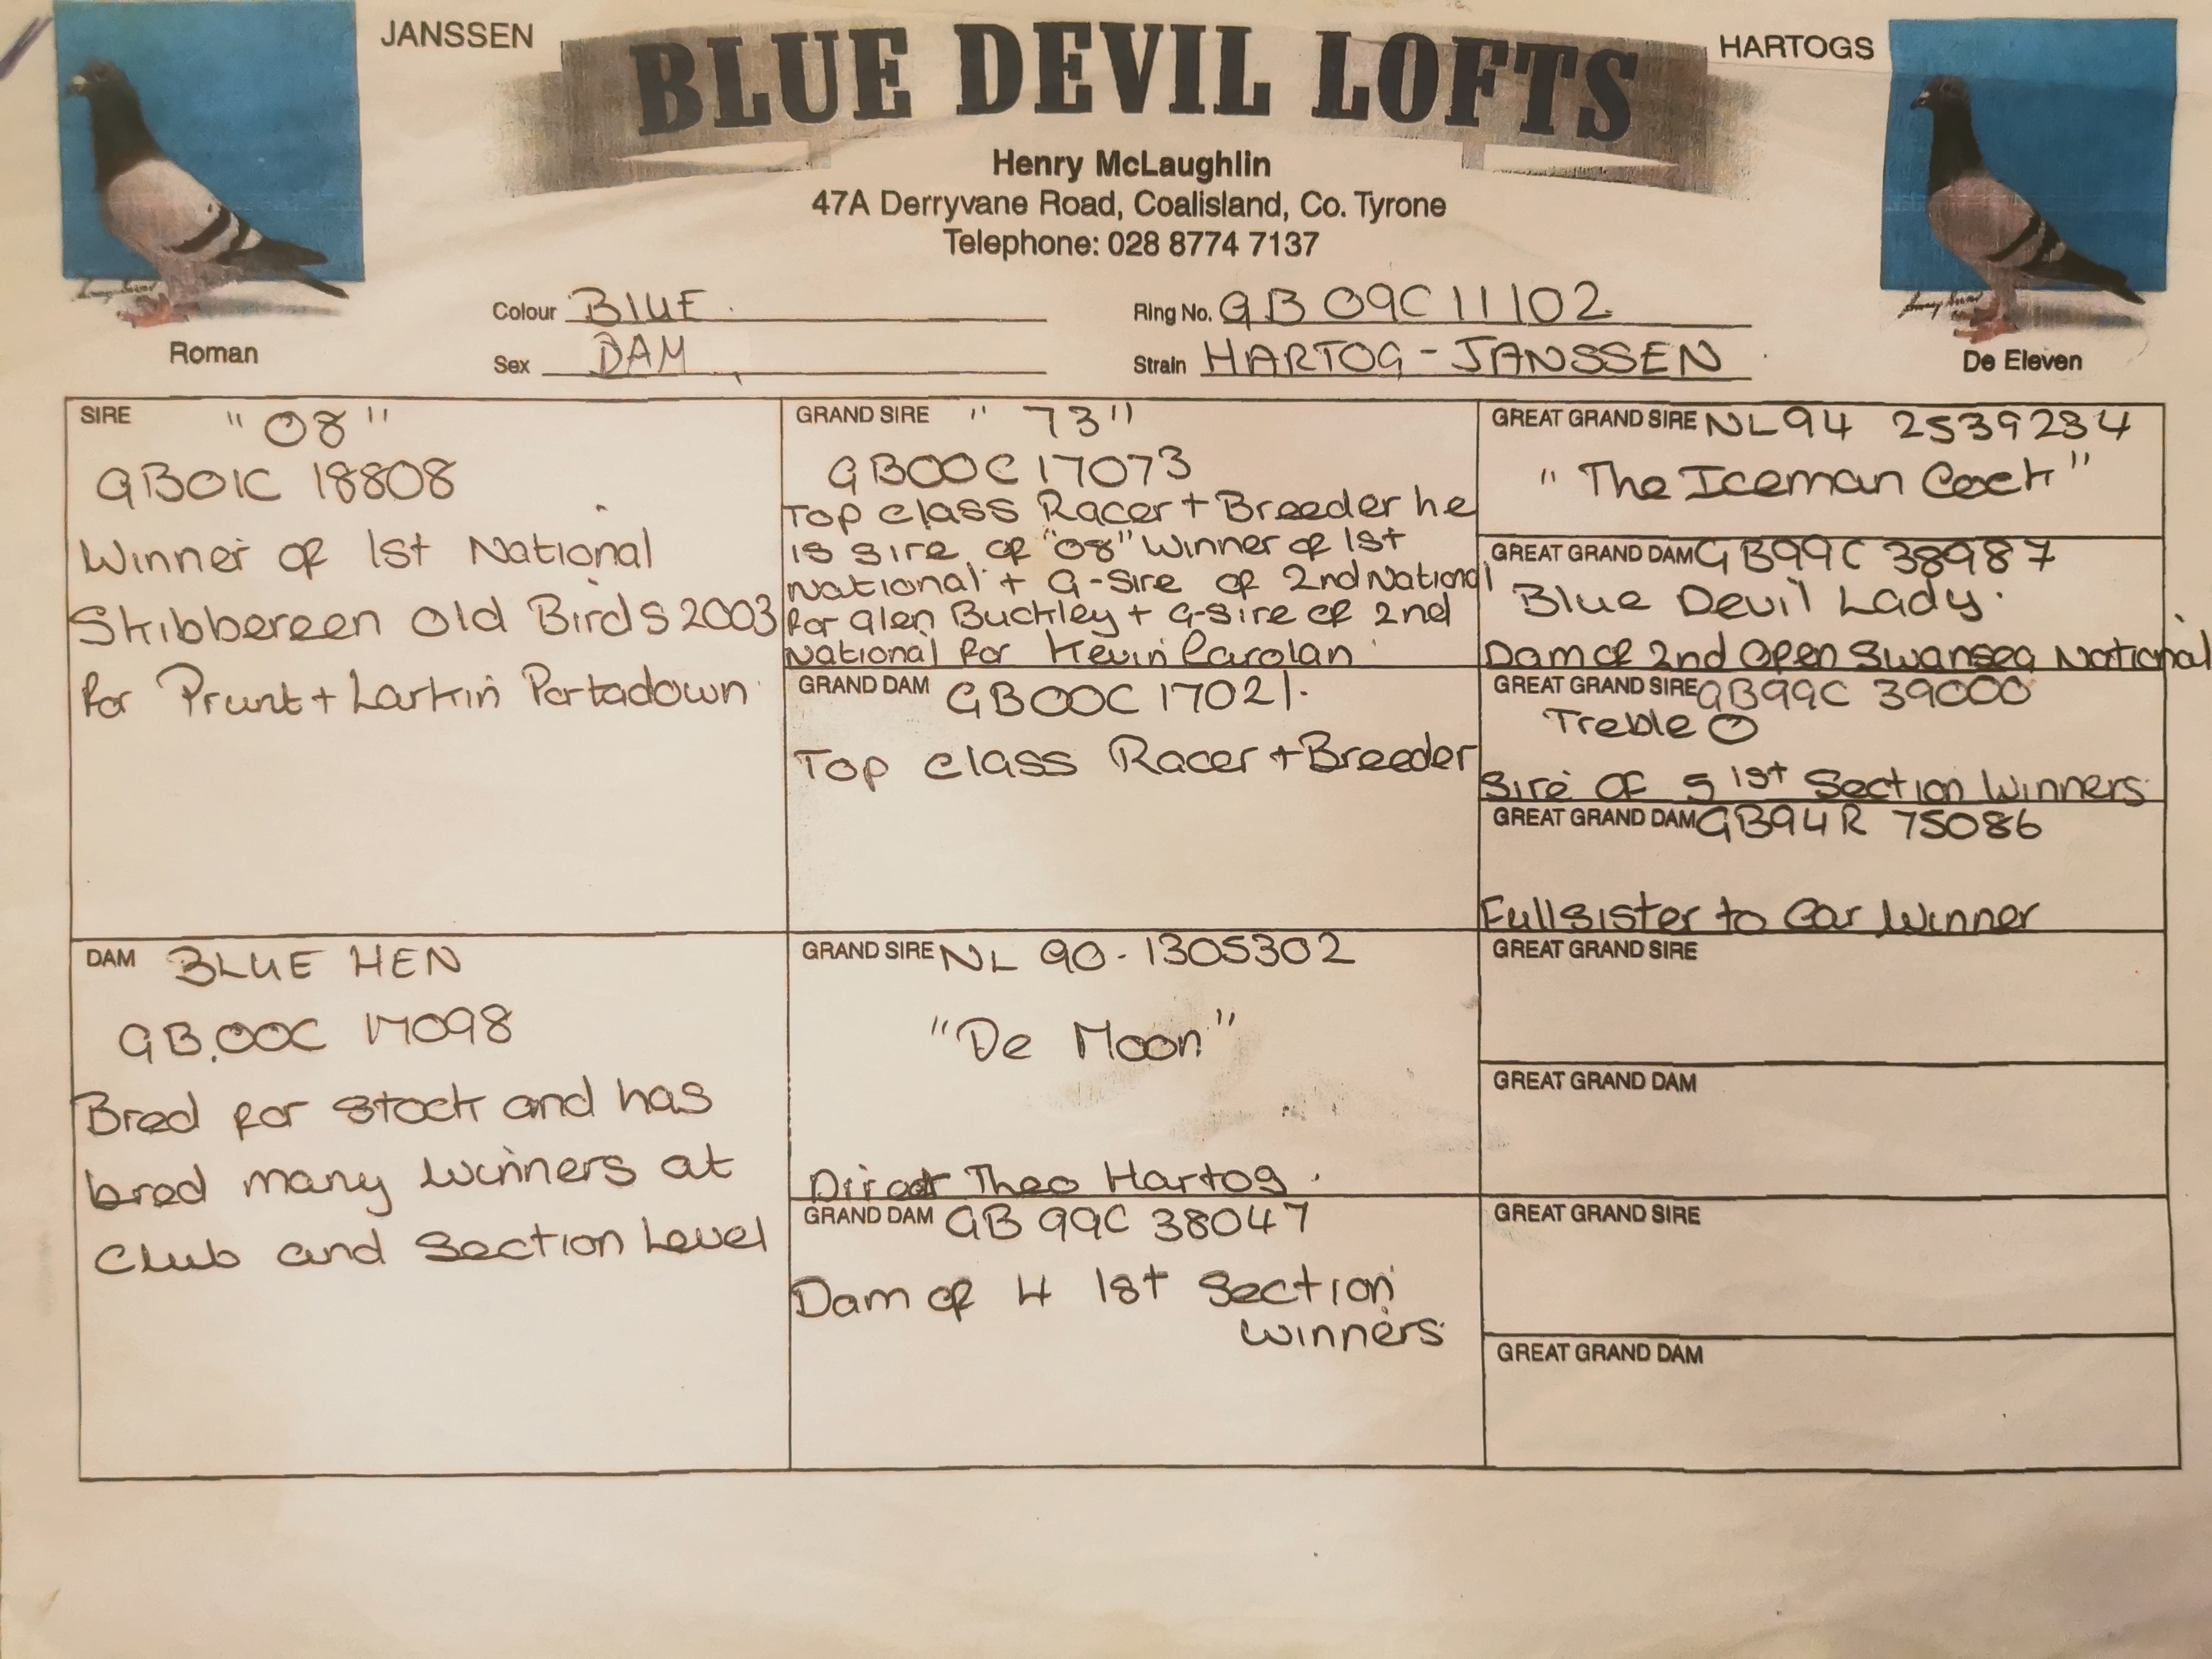 JANSSEN
BLUE DEVIL LOFTS
HARTOGS
Henry McLaughlin
47A Derryvane Road, Coalisland, Co. Tyrone
Telephone: 028 8774 7137
Colour BLUE
Ring No. GB 09C11102
Sex DAM
Strain HARTOG-JANSSEN
Roman
De Eleven
SIRE "08"
GB01C 18808
Winner of 1st National
Skibbereen Old Birds 2003
for Prunt + Larkin Portadown
GRAND SIRE "73"
GB00C 17073
Top class Racer + Breeder he
is sire of "08" Winner of 1st
National + G-Sire of 2nd National
for Glen Buckley + G-Sire of 2nd
National for Kevin Carolan
GRAND DAM GB00C 17021.
Top class Racer + Breeder
GREAT GRAND SIRE NL94 2539234
"The Iceman Cock"
GREAT GRAND DAM GB99C 38987
Blue Devil Lady.
Dam of 2nd Open Swansea National
GREAT GRAND SIRE GB99C 39000
Treble O
Sire OF 5 1st Section Winners
GREAT GRAND DAM GB94R 75086
Full sister to Car Winner
DAM BLUE HEN
GB.00C 17098
Bred for stock and has
bred many winners at
Club and Section Level
GRAND SIRE NL 90-1305302
"De Moon"
Direct Theo Hartog.
GRAND DAM GB 99C 38047
Dam of 4 1st Section
winners
GREAT GRAND SIRE
GREAT GRAND DAM
GREAT GRAND SIRE
GREAT GRAND DAM